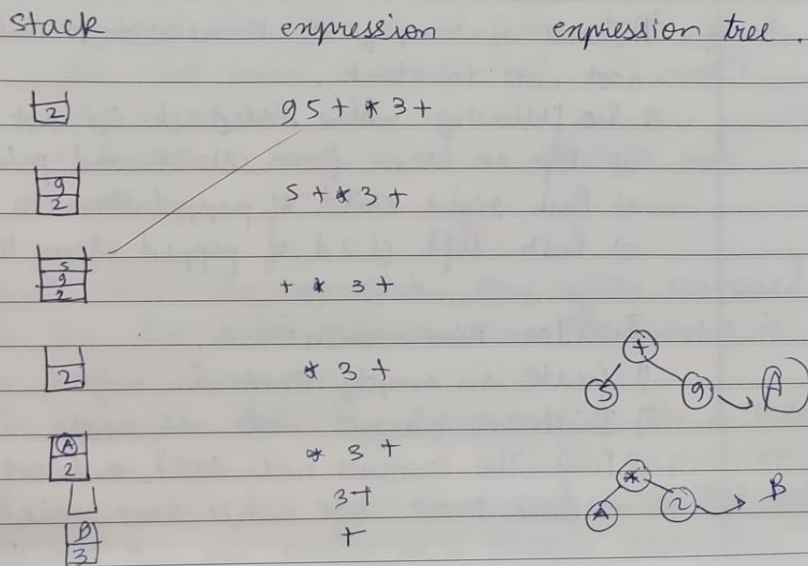 stack expression expression tree.
2 95+*3+
9
2 5+*3+
5
9
2 +*3+
2 *3+ + 5 9 A
A
2 *3+
3+ * A 2 B
B
3 +